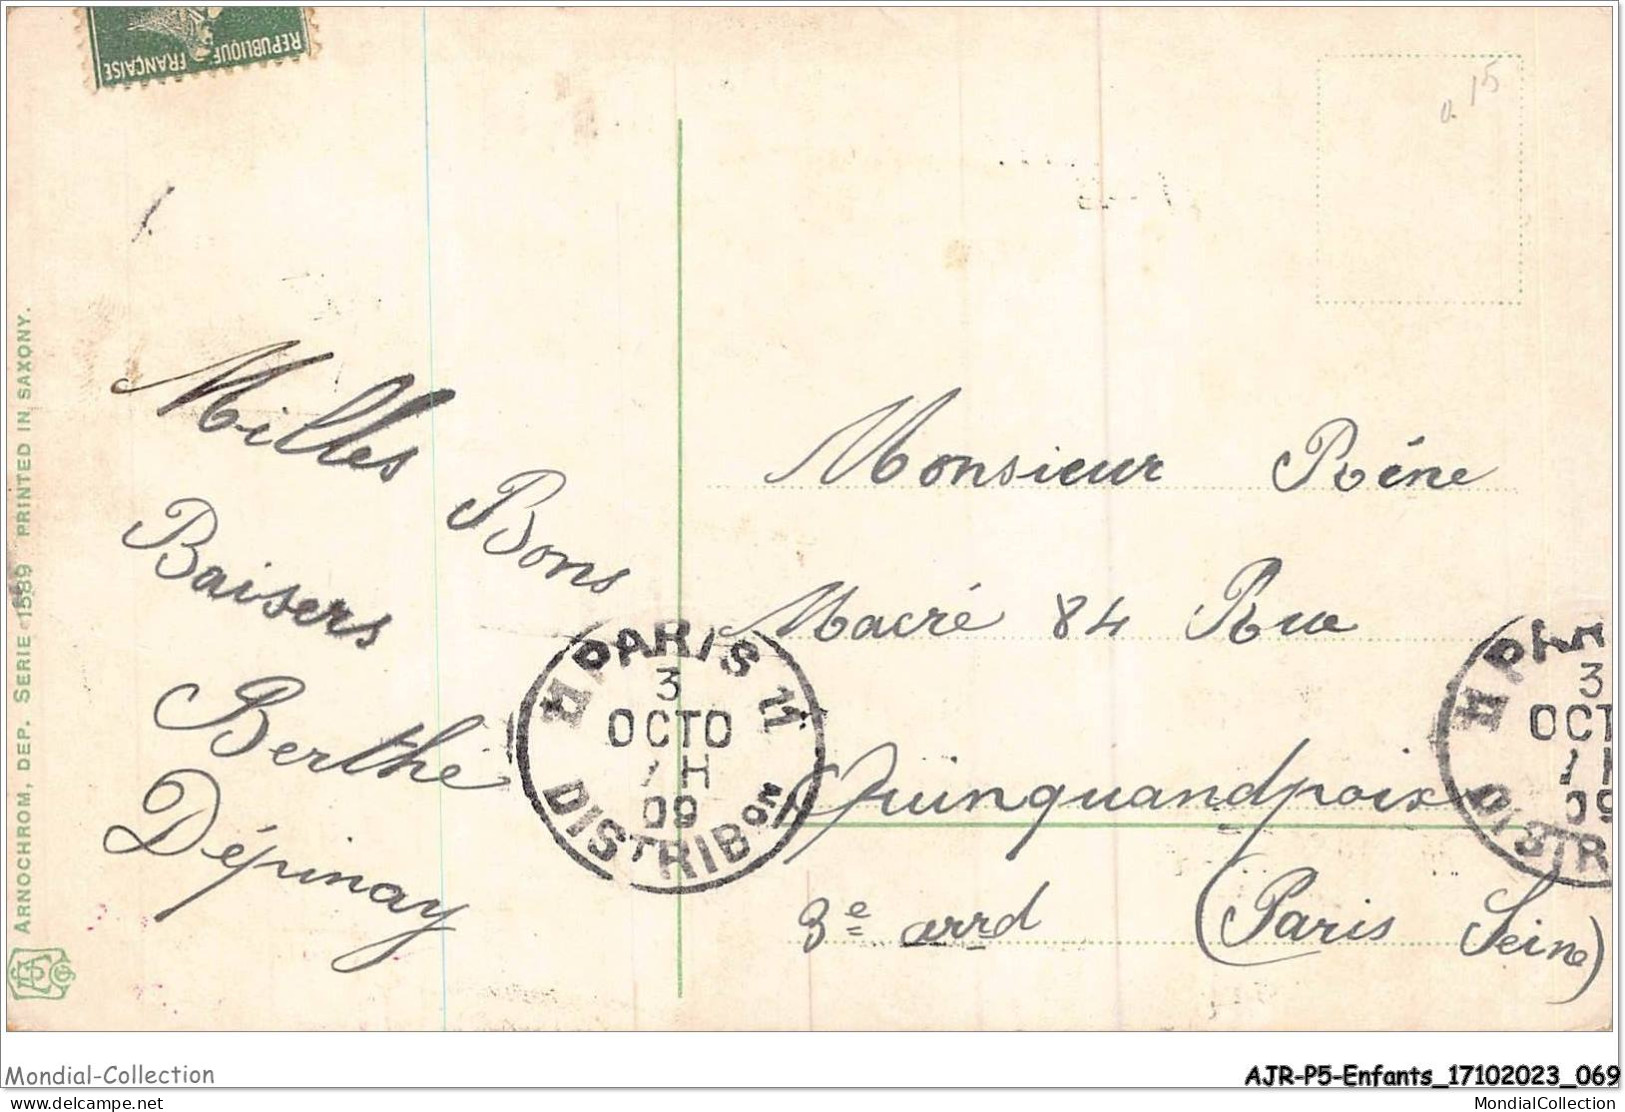 REPUBLIQUE FRANÇAISE
0.15
ARNOCHROM, DEP. SERIE 1589 PRINTED IN SAXONY.
Milles Bons
Baisers
Berthe
Dépinay
PARIS 11
3
OCTO
1 H
09
DISTRIBON
Monsieur Réne
Macré 84 Rue
Quinquandpoix
3e arrd (Paris Seine)
PAR
3
OCT
1 H
09
DISTR
Mondial-Collection
AJR-P5-Enfants_17102023_069
delcampe.net
MondialCollection